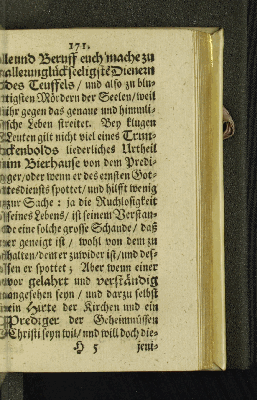 171.
le und Beruff euch mache zu
allerunglückseeligste Dienern
des Teuffels / und also zu blu-
tigsten Mördern der Seelen / weil
ihr gegen das genaue und himmli-
sche Leben streitet. Bey klugen
Leuten gilt nicht viel eines Trun-
ckenbolds liederliches Urtheil
im Bierhause von dem Predi-
ger / oder wenn er des ernsten Got-
tesdiensts spottet / und hilfft wenig
zur Sache: ja die Ruchlosigkeit
seines Lebens / ist seinem Verstan-
de eine solche grosse Schande / daß
er geneigt ist / wohl von dem zu
halten / dem er zuwider ist / und des-
sen er spottet; Aber wenn einer
vor gelahrt und verständig
angesehen seyn / und darzu selbst
ein Hirte der Kirchen und ein
Prediger der Geheimnüssen
Christi seyn wil / und will doch die-
H 5 jeni-